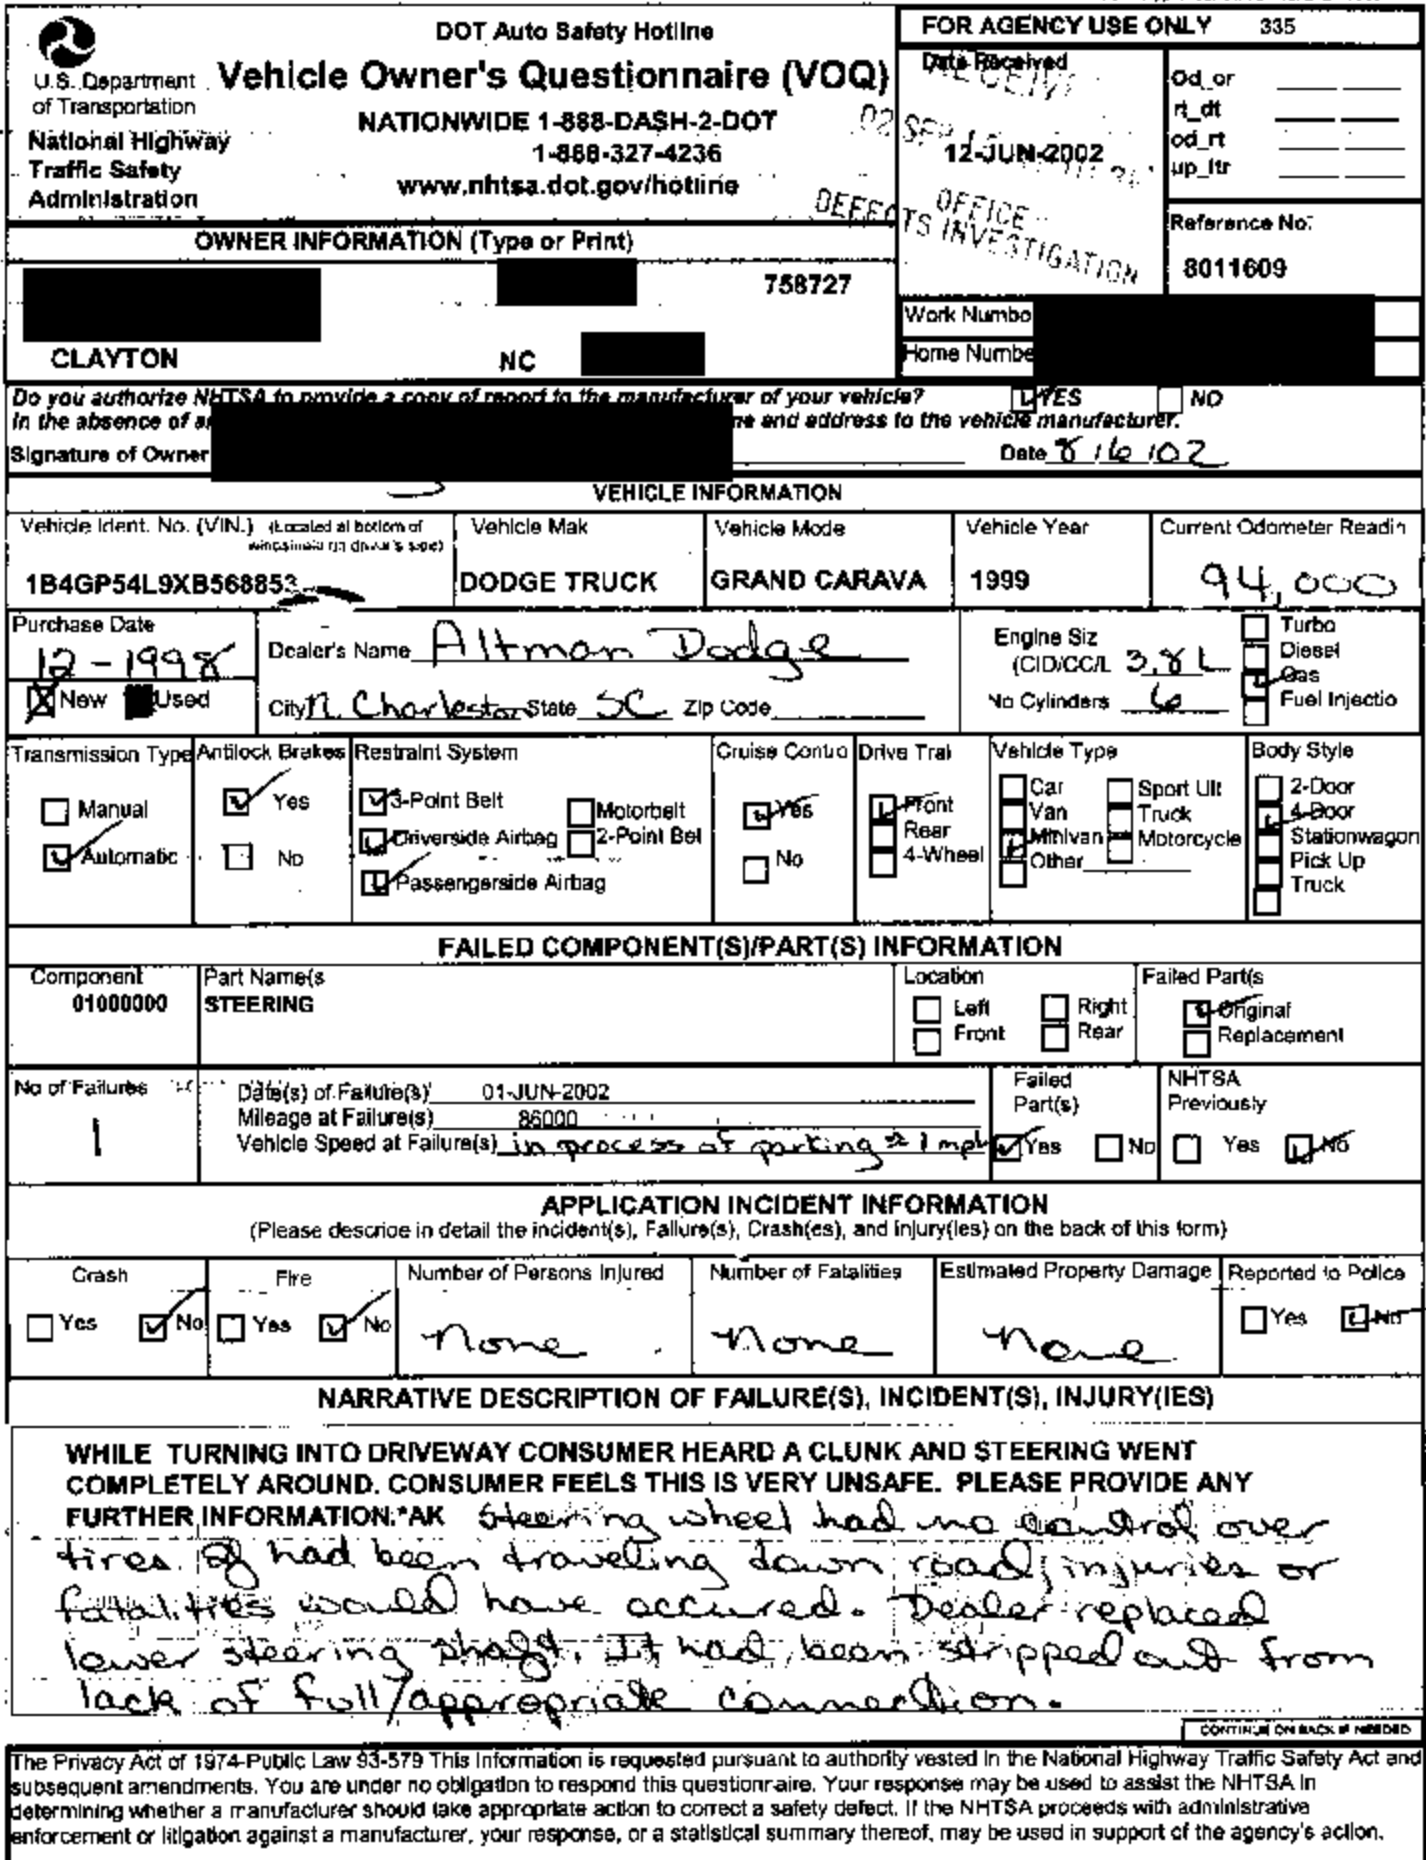 DOT Auto Safety Hotline
Vehicle Owner's Questionnaire (VOQ)
NATIONWIDE 1-888-DASH-2-DOT
1-888-327-4236
www.nhtsa.dot.gov/hotline
U.S. Department
of Transportation
National Highway
Traffic Safety
Administration
FOR AGENCY USE ONLY 335
Date Received
12-JUN-2002
OFFICE
DEFECTS INVESTIGATION
Od_or
rt_dt
od_rt
up_ltr
Reference No:
8011609
OWNER INFORMATION (Type or Print)
758727
CLAYTON NC
Work Numbo
Home Numbe
Do you authorize NHTSA to provide a copy of report to the manufacturer of your vehicle? YES NO
In the absence of a ne and address to the vehicle manufacturer.
Signature of Owner Date 8/6/02
VEHICLE INFORMATION
Vehicle Ident. No. (VIN.) (Located at bottom of windshield on driver's side)
1B4GP54L9XB568853
Vehicle Mak
DODGE TRUCK
Vehicle Mode
GRAND CARAVA
Vehicle Year
1999
Current Odometer Readin
94,000
Purchase Date
12-1998
New Used
Dealer's Name Altman Dodge
City N. Charleston State SC Zip Code
Engine Siz
(CID/CC/L 3.8 L
No Cylinders 6
Turbo
Diesel
Gas
Fuel Injectio
Transmission Type
Manual
Automatic
Antilock Brakes
Yes
No
Restraint System
3-Point Belt
Driverside Airbag
Passengerside Airbag
Motorbelt
2-Point Bel
Cruise Contro
Yes
No
Drive Trai
Front
Rear
4-Wheel
Vehicle Type
Car
Van
Minivan
Other
Sport Ult
Truck
Motorcycle
Body Style
2-Door
4-Door
Stationwagon
Pick Up
Truck
FAILED COMPONENT(S)/PART(S) INFORMATION
Component
01000000
Part Name(s
STEERING
Location
Left Right
Front Rear
Failed Part(s
Original
Replacement
No of Failures
1
Date(s) of Failure(s) 01-JUN-2002
Mileage at Failure(s) 86000
Vehicle Speed at Failure(s) in process of parking ≈ 1 mph
Failed
Part(s)
Yes No
NHTSA
Previously
Yes No
APPLICATION INCIDENT INFORMATION
(Please describe in detail the incident(s), Failure(s), Crash(es), and Injury(ies) on the back of this form)
Crash
Yes No
Fire
Yes No
Number of Persons Injured
None
Number of Fatalities
None
Estimated Property Damage
None
Reported to Police
Yes No
NARRATIVE DESCRIPTION OF FAILURE(S), INCIDENT(S), INJURY(IES)
WHILE TURNING INTO DRIVEWAY CONSUMER HEARD A CLUNK AND STEERING WENT
COMPLETELY AROUND. CONSUMER FEELS THIS IS VERY UNSAFE. PLEASE PROVIDE ANY
FURTHER INFORMATION.*AK Steering wheel had no control over
tires. If had been traveling down road, injuries or
fatalities would have occured. Dealer replaced
lower steering shaft. It had been stripped out from
lack of full/appropriate connection.
CONTINUE ON BACK IF NEEDED
The Privacy Act of 1974-Public Law 93-579 This Information is requested pursuant to authority vested in the National Highway Traffic Safety Act and
subsequent amendments. You are under no obligation to respond this questionnaire. Your response may be used to assist the NHTSA in
determining whether a manufacturer should take appropriate action to correct a safety defect. If the NHTSA proceeds with administrative
enforcement or litigation against a manufacturer, your response, or a statistical summary thereof, may be used in support of the agency's action.